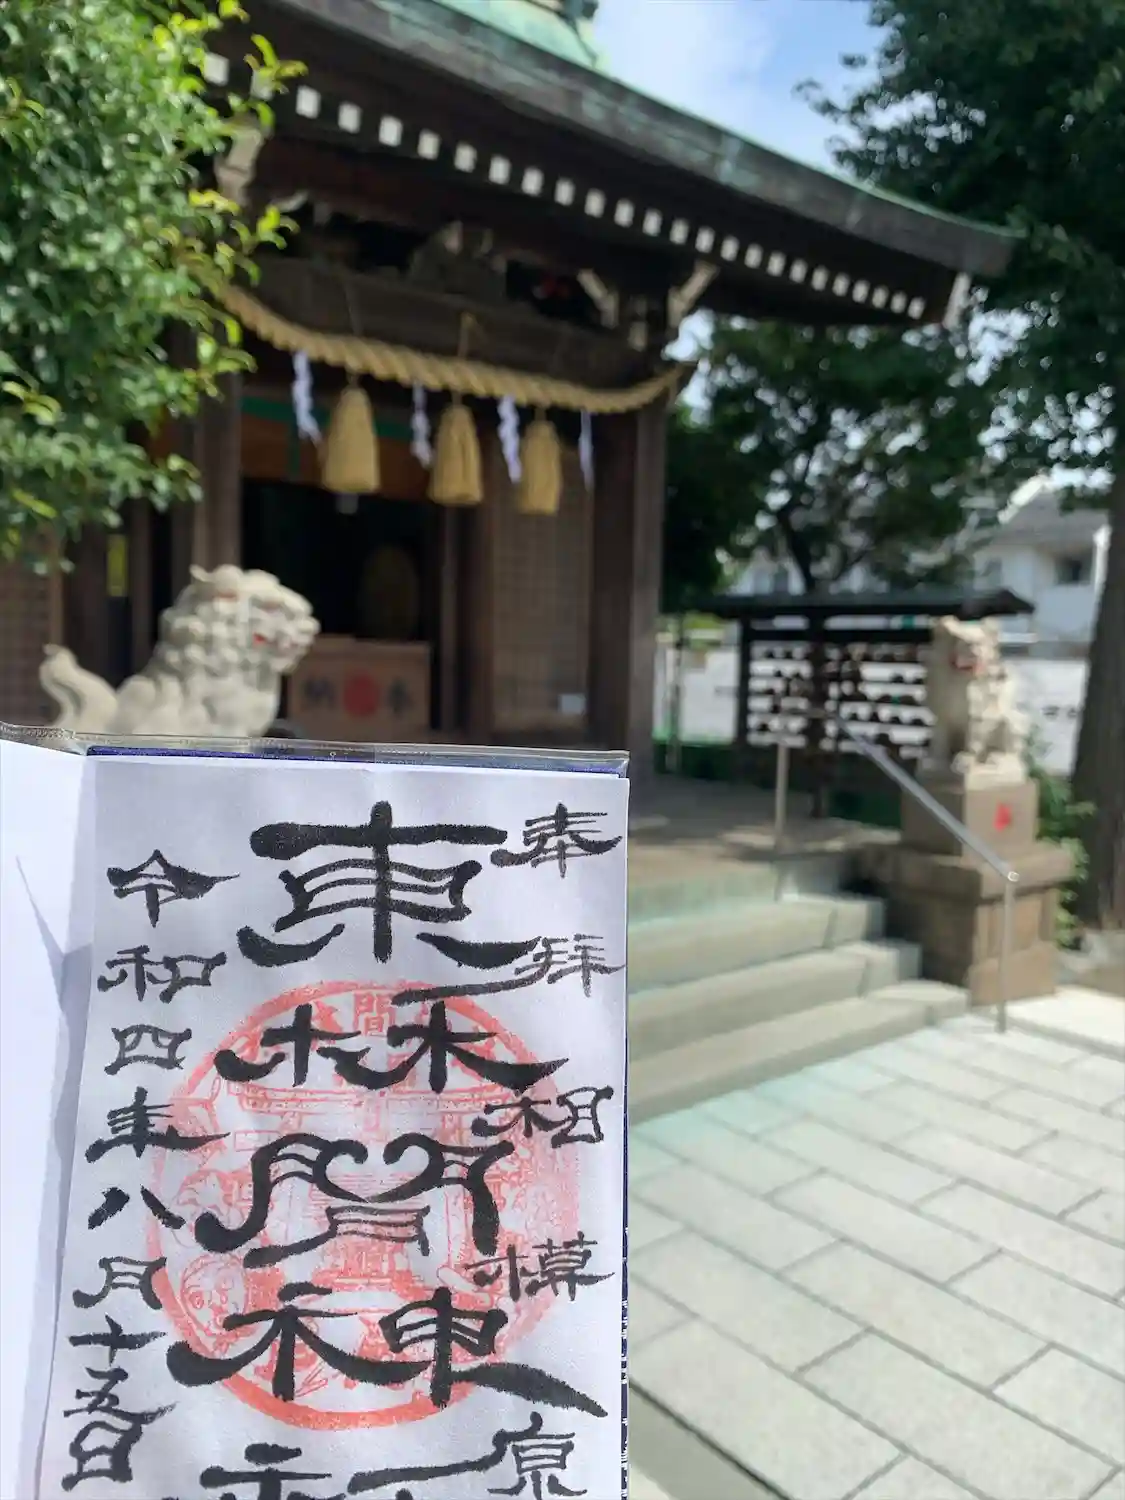 奉納
奉拝 相模原
東林間神社
令和四年八月十五日
間